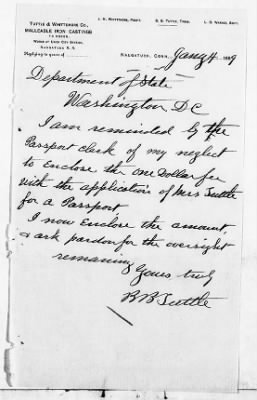 TUTTLE & WHITTEMORE CO.,
MALLEABLE IRON CASTINGS
TO ORDER.
WORKS AT UNION CITY STATION.
NAUGATUCK R. R.
Replying to yours of
J. H. WHITTEMORE, PREST.
B. B. TUTTLE, TREAS.
NAUGATUCK, CONN., Jany 4 1889
Department of State
Washington DC
I am reminded by the
Passport clerk of my neglect
to Enclose the one Dollar fee
with the application of Mrs Tuttle
for a Passport
I now Enclose the amount,
& ask pardon for the oversight
remaining
Yours truly
B B Tuttle